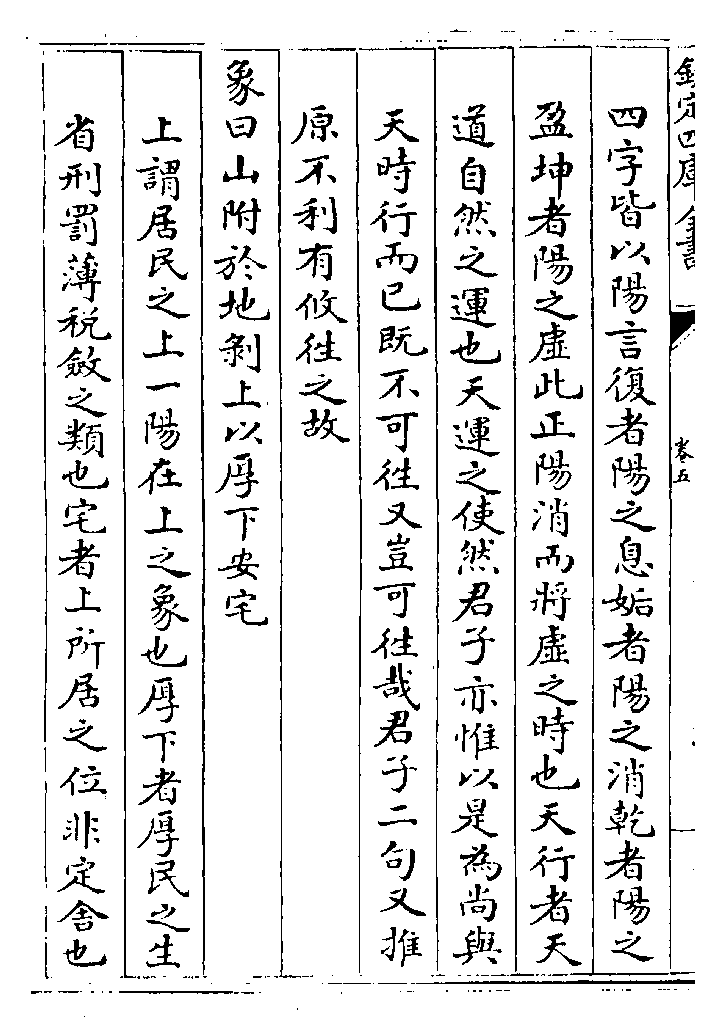 欽定四庫全書
卷五
四字皆以陽言復者陽之息姤者陽之消乾者陽之
盈坤者陽之虛此正陽消而將虛之時也天行者天
道自然之運也天運之使然君子亦惟以是為尚與
天時行而已既不可徃又豈可徃哉君子二句又推
原不利有攸徃之故
象曰山附於地剝上以厚下安宅
上謂居民之上一陽在上之象也厚下者厚民之生
省刑罰薄稅斂之類也宅者上所居之位非定舍也